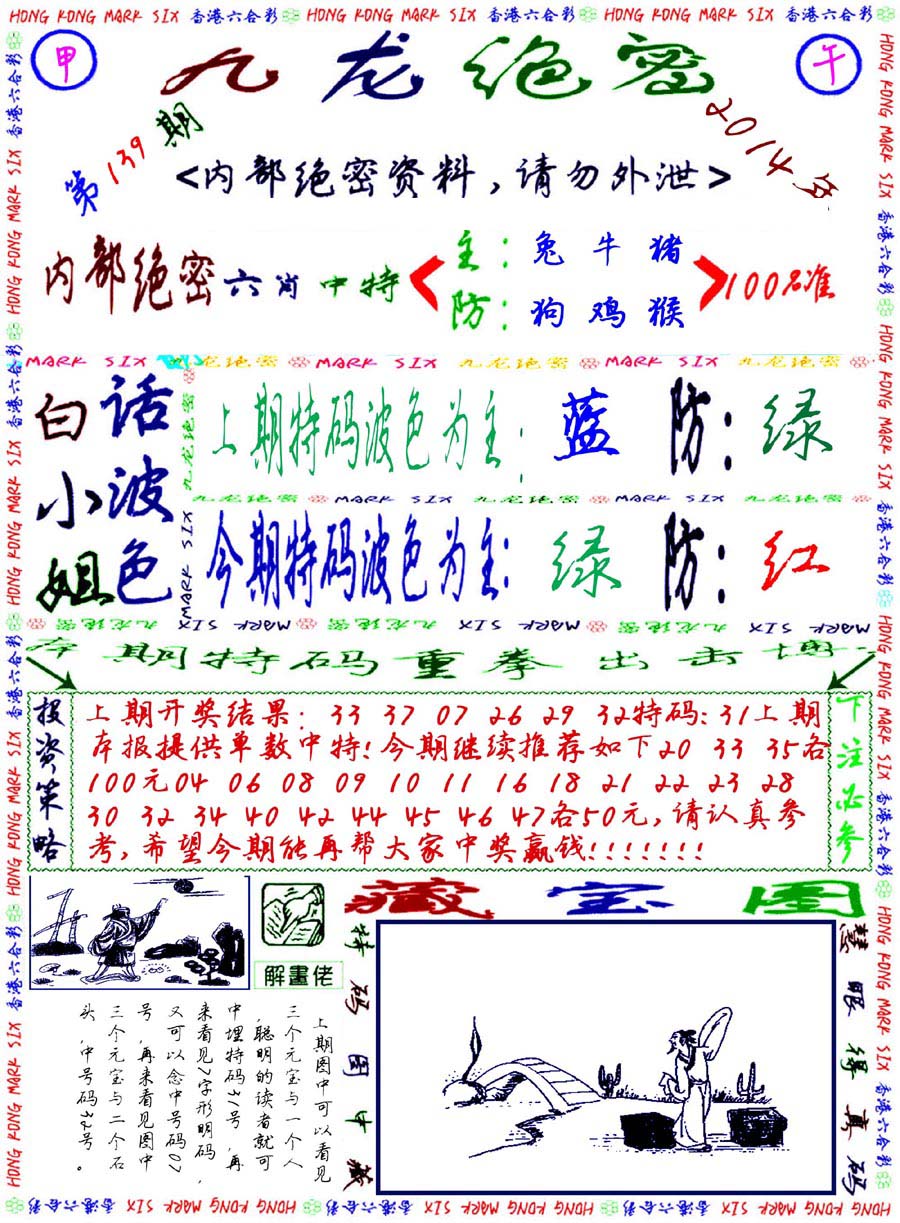 HONG KONG MARK SIX 香港六合彩 HONG KONG MARK SIX 香港六合彩 HONG KONG MARK SIX 香港六合彩
甲
九龙绝密
午
第139期
2014年
<内部绝密资料,请勿外泄>
内部绝密六肖中特
主:兔牛猪
防:狗鸡猴
100%准
MARK SIX 九龙绝密 MARK SIX 九龙绝密 MARK SIX 九龙绝密
白小姐
话波色
上期特码波色为主:蓝 防:绿
九龙绝密 MARK SIX 九龙绝密 MARK SIX 九龙绝密
今期特码波色为主:绿 防:红
本期特码重拳出击博
投资策略
上期开奖结果:33 37 07 26 29 32特码:31上期
本报提供单数中特!今期继续推荐如下20 33 35各
100元04 06 08 09 10 11 16 18 21 22 23 28
30 32 34 40 42 44 45 46 47各50元,请认真参
考,希望今期能再帮大家中奖赢钱!!!!!!!
下注必参
解畫佬
藏宝图
特码图中藏
慧眼得真码
上期图中可以看见
三个元宝与一个人
,聪明的读者就可
中埋特码31号,再
来看见7字形明码,
又可以念中号码07
号,再来看见图中
三个元宝与二个石
头,中号码32号。
HONG KONG MARK SIX 香港六合彩 HONG KONG MARK SIX 香港六合彩 HONG KONG MARK SIX 香港六合彩